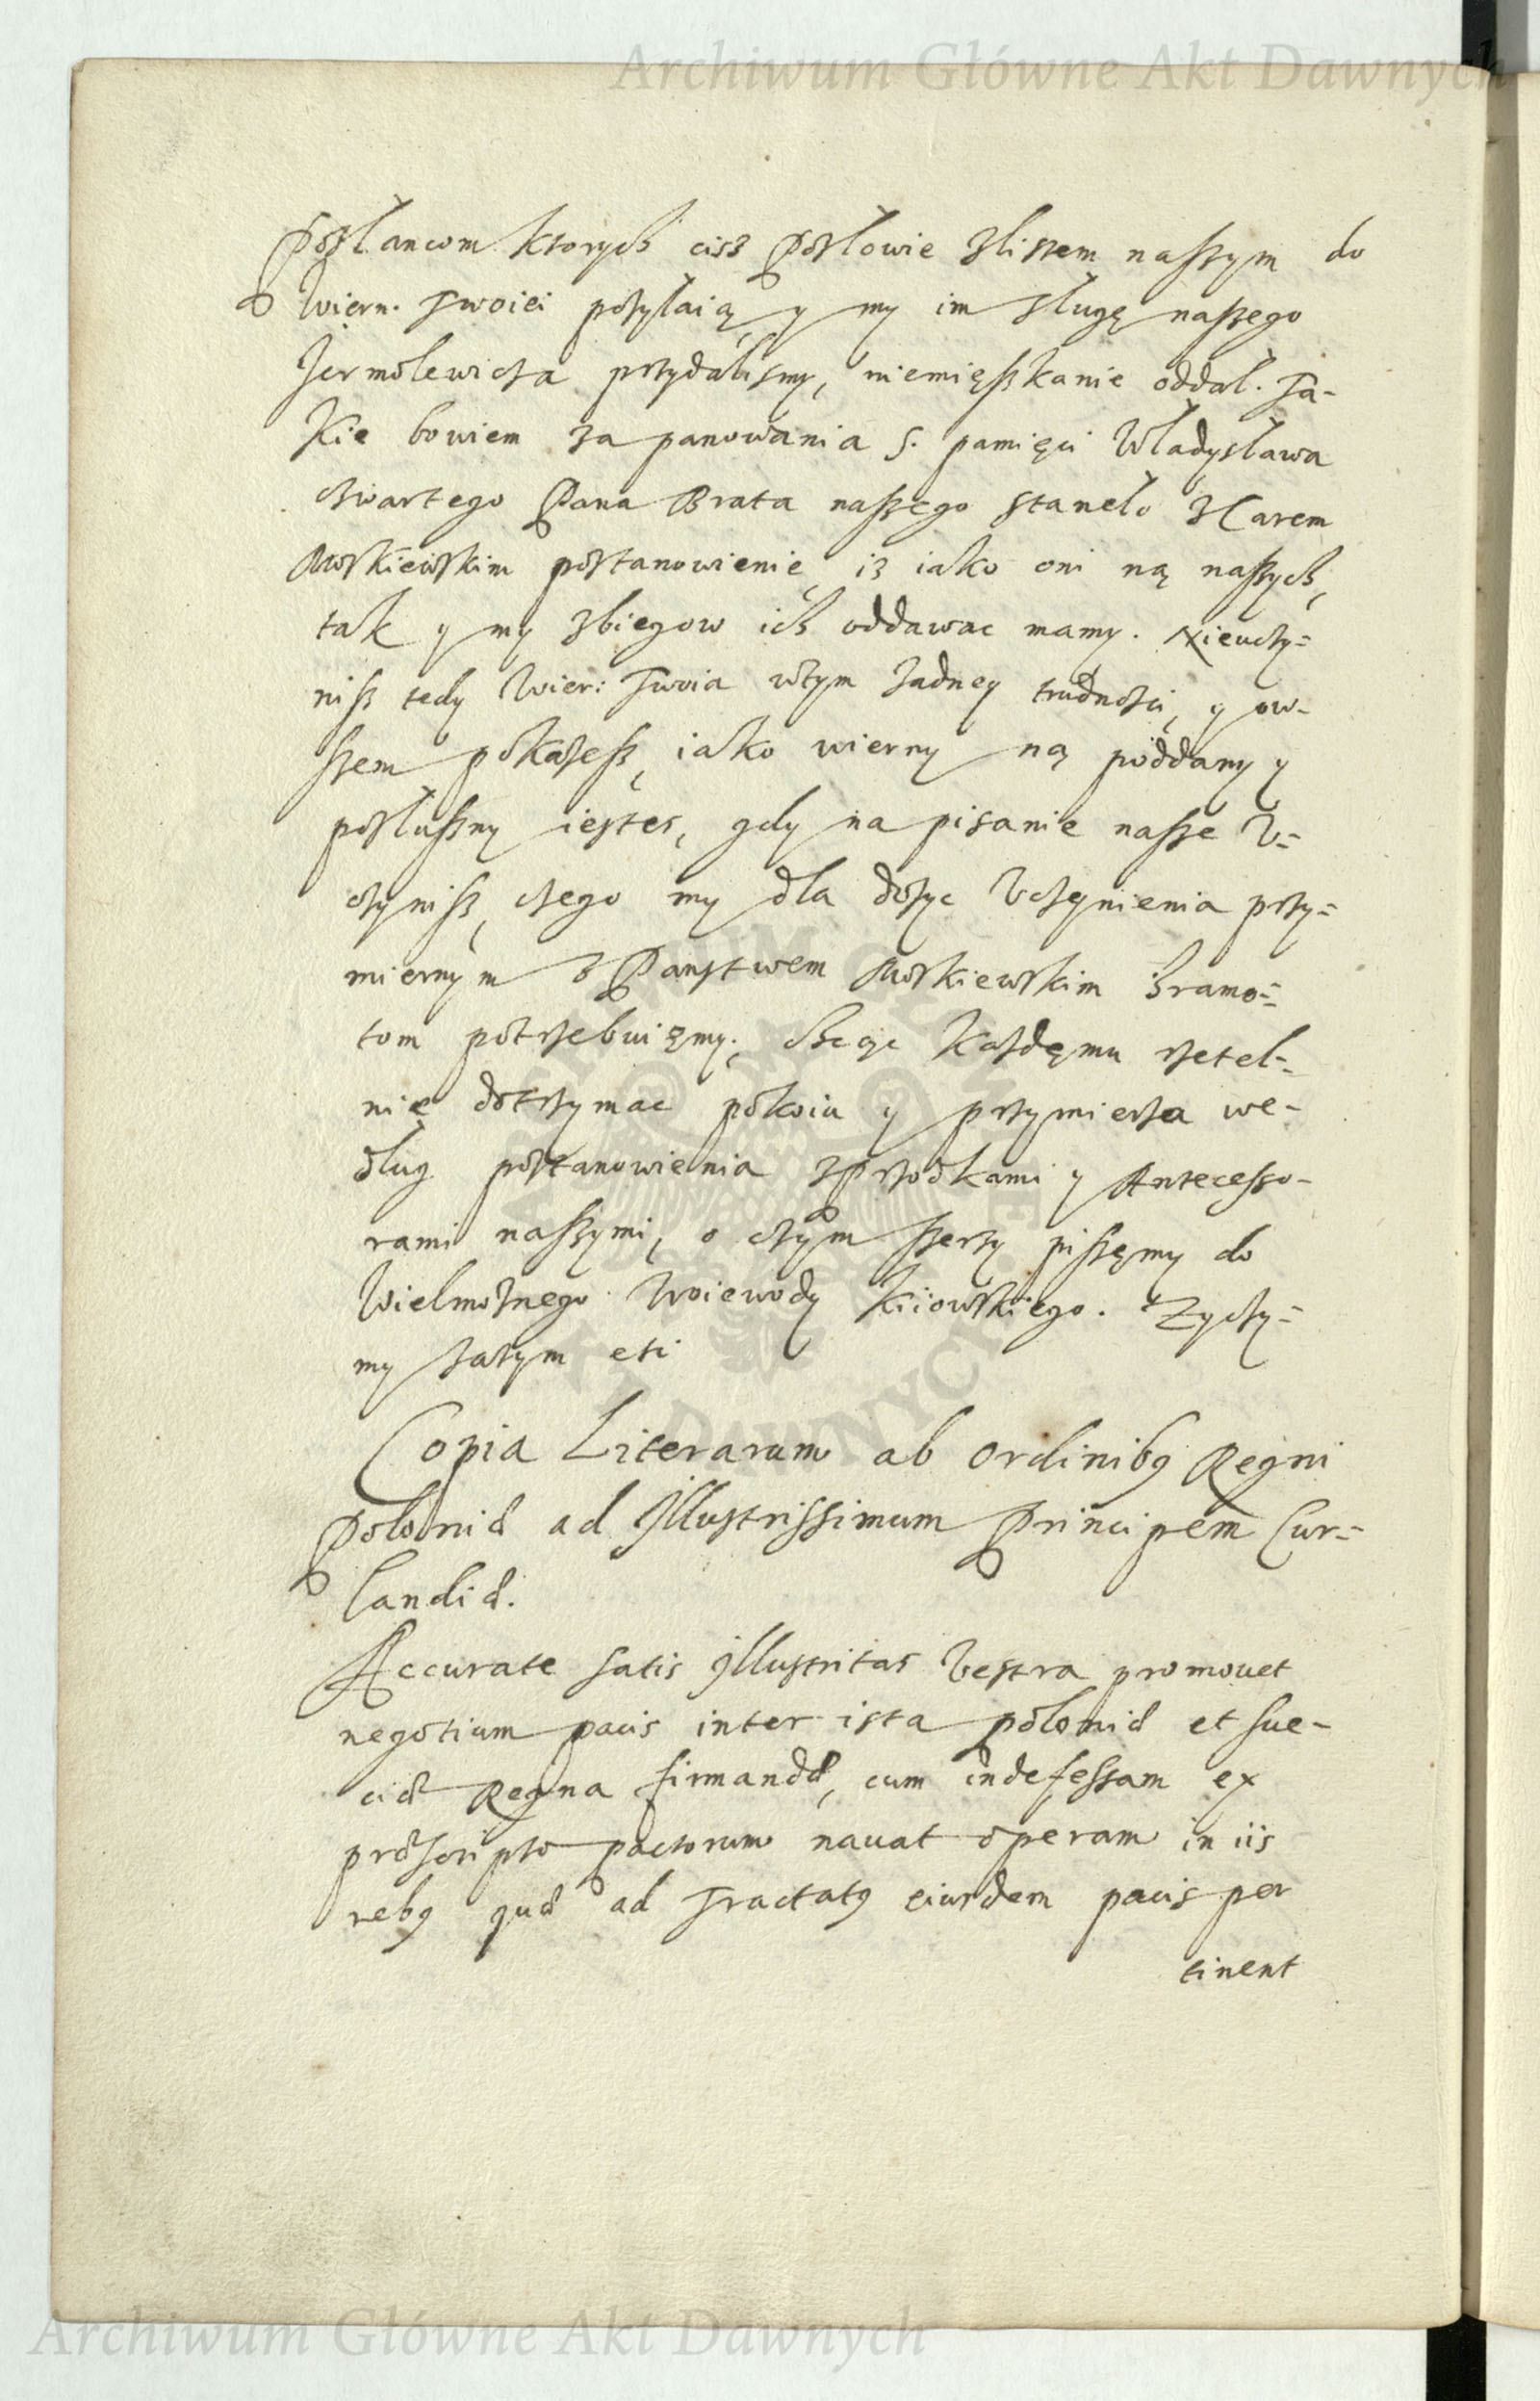 Archiwum Główne Akt Dawnych
Posłancom ktorych cisz Posłowie zlistem naszym do
Wiern. Twoiei posyłaią, y my im sługę naszego
Jermolewicza przydalismy, niemięszkanie oddał. Ta-
kie bowiem za panowania S. pamięci Władysława
czwartego Pana Brata naszego stanelo z Carem
Moskiewskim postanowienie, iz iako oni ną naszych,
tak y my zbiegow ich oddawac mamy. Nieuczy=
nisz tedy Wier: Twoia wtym zadney trudnosci, y ow-
szem pokazesz, iako wierny ną poddany y
posłuszny iestes, gdy na pisanie nasze V=
czynisz, czego my dla dosyc Vczynienia przy=
miernym z Panstwem Moskiewskim Hramo=
tom potrzebuięmy. Chcąc Kazdęmu rzetel=
nie dotrzymac pokoiu y przymierza we-
dlug postanowienia zPrzodkami y Antecesso-
rami naszymi, o czym szerzy piszęmy do
Wielmoznego Woiewody Kiiowskiego. Zyczy=
my zatym etc
Copia Literarum ab ordinibꝯ Regni
Poloniæ ad Illustrissimum Principem Cur=
landiæ.
Accurate satis Illustritas Vestra promouet
negotium pacis inter ista Poloniæ et Sue-
ciæ Regna firmandæ, cum indefessam ex
præscripto pactorum nauat operam in iis
rebꝯ quæ ad Tractatꝯ eiusdem pacis per
tinent
Archiwum Główne Akt Dawnych